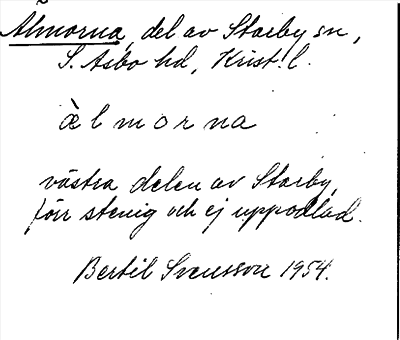 Älmorna, del av Starby sn,
S. Åsbo hd, Krist. l.
æ̀ l m o r na
västra delen av Starby,
förr stenig och ej uppodlad.
Bertil Svensson 1954.